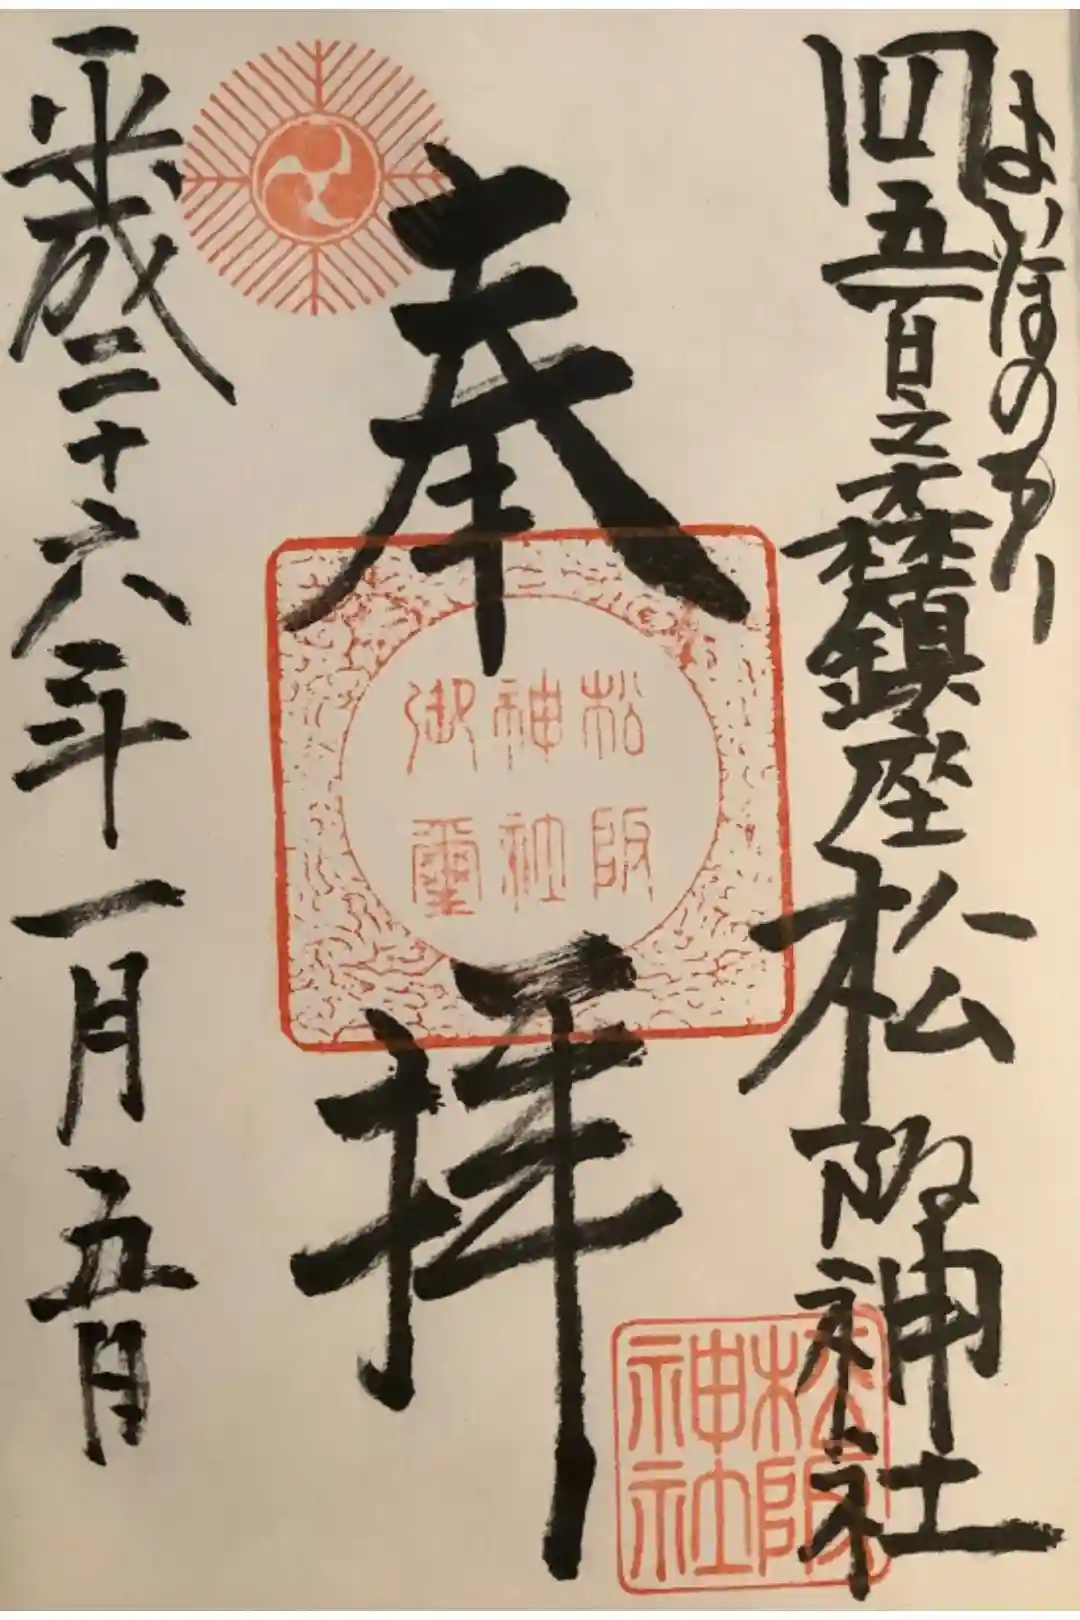 よいほのもり
四五百之森鎮座松阪神社
奉拝
平成二十六年一月五日
松阪
神社
御璽
松阪
神社